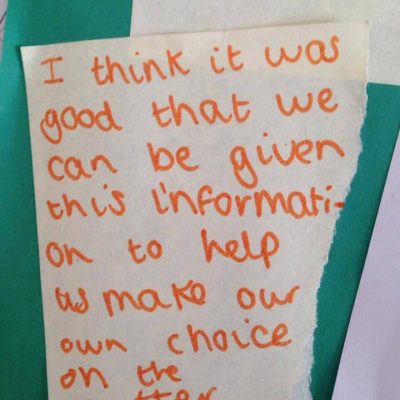 I think it was
good that we
can be given
this informati-
on to help
us make our
own choice
on the